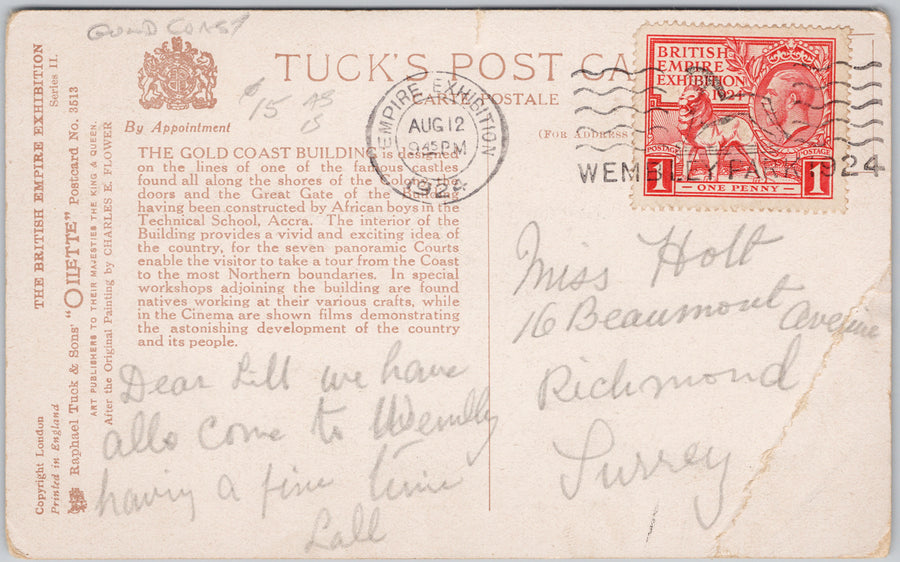 GOLD COAST
TUCK'S POST CA
CARTE POSTALE
By Appointment
$15 AB
13
(FOR ADDRESS
THE GOLD COAST BUILDING is designed
on the lines of one of the famous castles
found all along the shores of the Colony. The
doors and the Great Gate of the Building
having been constructed by African boys in the
Technical School, Accra. The interior of the
Building provides a vivid and exciting idea of
the country, for the seven panoramic Courts
enable the visitor to take a tour from the Coast
to the most Northern boundaries. In special
workshops adjoining the building are found
natives working at their various crafts, while
in the Cinema are shown films demonstrating
the astonishing development of the country
and its people.
THE BRITISH EMPIRE EXHIBITION
Series II.
Copyright London
Printed in England
Raphael Tuck & Sons' "OILETTE" Postcard No. 3513
ART PUBLISHERS TO THEIR MAJESTIES THE KING & QUEEN.
After the Original Painting by CHARLES E. FLOWER
EMPIRE EXHIBITION
AUG 12
9 45 PM
1924
WEMBLEY PARK 1924
BRITISH
EMPIRE
EXHIBITION
1924
POSTAGE
POSTAGE
1 ONE PENNY 1
Dear Lill we have
alls come to Wembly
having a fine time
Lall
Miss Holt
16 Beaumont Avenue
Richmond
Surrey